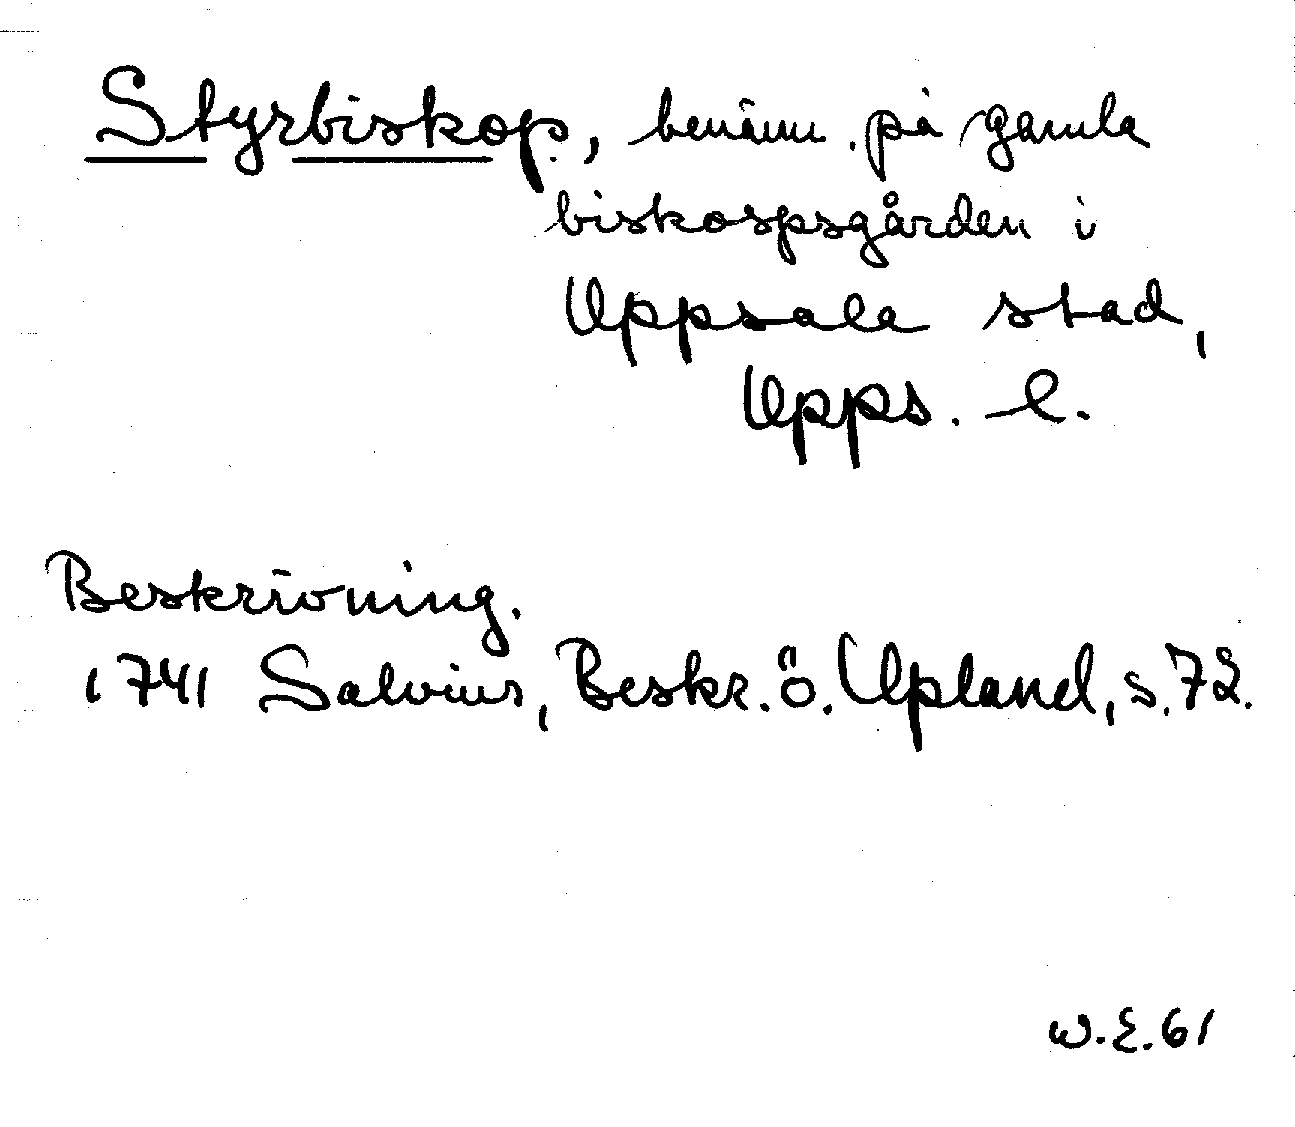 Styrbiskop, benämn. på gamla
biskospsgården i
Uppsala stad,
Upps. l.
Beskrivning.
1741 Salvius, Beskr. ö. Upland, s. 72.
W.E. 61